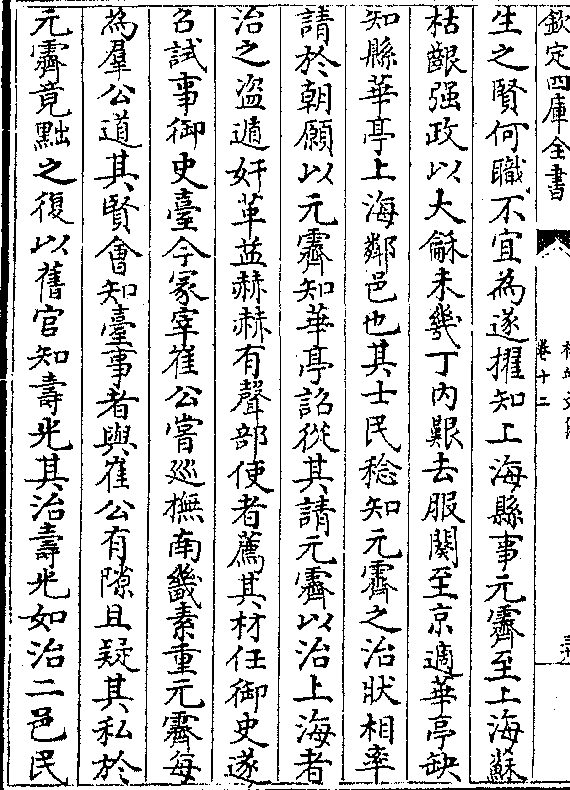 欽定四庫全書
卷十二
生之賢何職不宜為遂擢知上海縣事元霽至上海蘇
枯艱强政以大龢未幾丁内艱去服闋至京適華亭缺
知縣華亭上海鄰邑也其士民稔知元霽之治狀相率
請於朝願以元霽知華亭詔從其請元霽以治上海者
治之盗遁奸革益赫赫有聲部使者薦其材任御史遂
召試事御史臺今冢宰崔公嘗廵撫南畿素重元霽每
為羣公道其賢會知臺事者與崔公有隙且疑其私於
元霽竟黜之復以舊官知壽光其治壽光如治二邑民